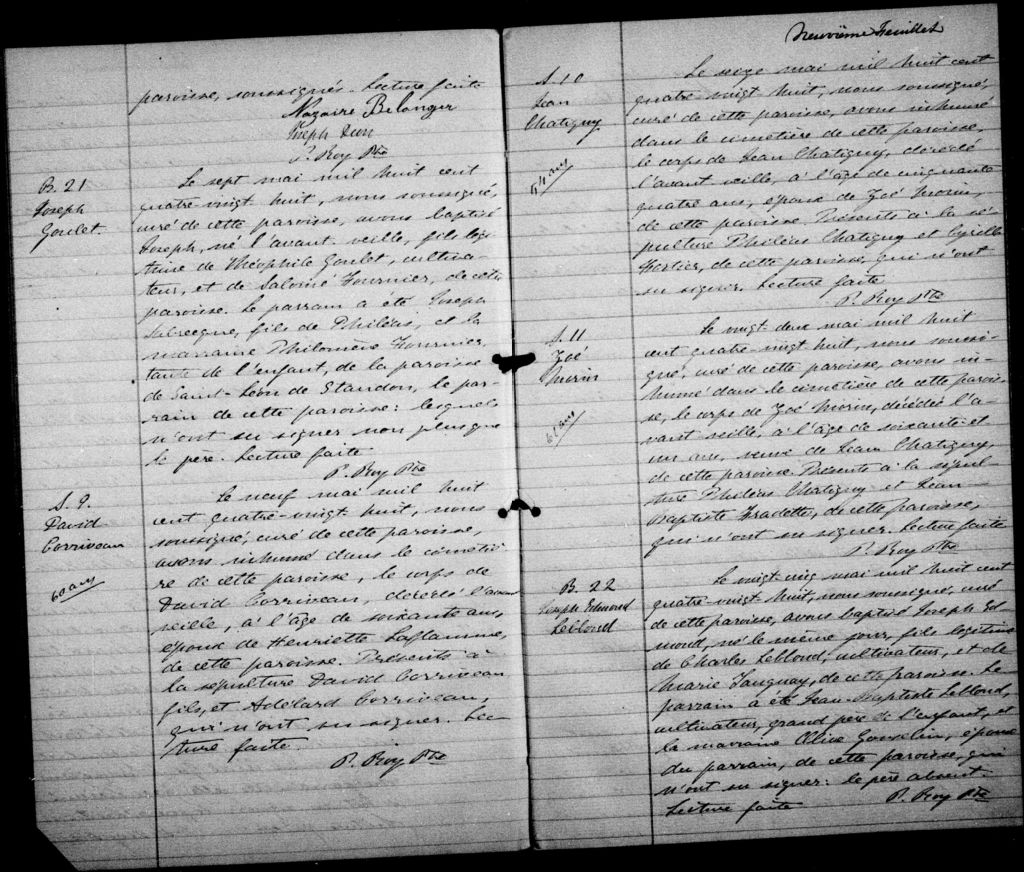 paroisse, soussignés. Lecture faite
Nazaire Belanger
Joseph Dion
P. Roy Ptre
B. 21
Joseph
Goulet.
Le sept mai mil huit cent
quatre-vingt huit, nous soussigné,
curé de cette paroisse, avons baptisé
Joseph, né l'avant-veille, fils légi-
time de Théophile Goulet, cultiva-
teur, et de Salomé Fournier, de cette
paroisse. Le parrain a été Joseph
fils de Philéas, et la
marraine Philomène Fournier,
tante de l'enfant, de la paroisse
de Saint-Léon de Standon, le par-
rain de cette paroisse: lesquels
n'ont su signer non plus que
le père. Lecture faite
P. Roy Ptre
S. 9.
David
Corriveau
60 ans
Le neuf mai mil huit
cent quatre-vingt huit, nous
soussigné, curé de cette paroisse,
avons inhumé dans le cimetiè-
re de cette paroisse, le corps de
David Corriveau, décédé l'avant
veille, à l'âge de soixante ans,
époux de Henriette Laflamme,
de cette paroisse. Présents à
la sépulture David Corriveau
fils, et Adélard Corriveau,
qui n'ont su signer. Lec-
ture faite.
P. Roy Ptre
Neuvième Feuillet
S. 10
Jean
Chatigny
54 ans
Le seize mai mil huit cent
quatre-vingt huit, nous soussigné,
curé de cette paroisse, avons inhumé
dans le cimetière de cette paroisse,
le corps de Jean Chatigny, décédé
l'avant veille, à l'âge de cinquante
quatre ans, époux de Zoé Morin,
de cette paroisse. Présents à la sé-
pulture Philéas Chatigny et Cyrille
Fortier, de cette paroisse, qui n'ont
su signer. Lecture faite
P. Roy Ptre
S. 11
Zoé
Morin
61 ans
Le vingt-deux mai mil huit
cent quatre-vingt huit, nous soussi-
gné, curé de cette paroisse, avons in-
humé dans le cimetière de cette parois-
se, le corps de Zoé Morin, décédée l'a-
vant-veille, à l'âge de soixante et
un ans, veuve de Jean Chatigny,
de cette paroisse. Présents à la sépul-
ture Philéas Chatigny et Jean-
Baptiste Fradette, de cette paroisse,
qui n'ont su signer. Lecture faite
P. Roy Ptre
B. 22
Joseph Edmond
Leblond
Le vingt-cinq mai mil huit cent
quatre-vingt huit, nous soussigné, curé
de cette paroisse, avons baptisé Joseph Ed-
mond, né le même jour, fils légitime
de Charles Leblond, cultivateur, et de
Marie Tanguay, de cette paroisse. Le
parrain a été Jean-Baptiste Leblond,
cultivateur, grand père de l'enfant, et
la marraine Olive Gosselin, épouse
du parrain, de cette paroisse, qui
n'ont su signer: le père absent.
Lecture faite
P. Roy Ptre